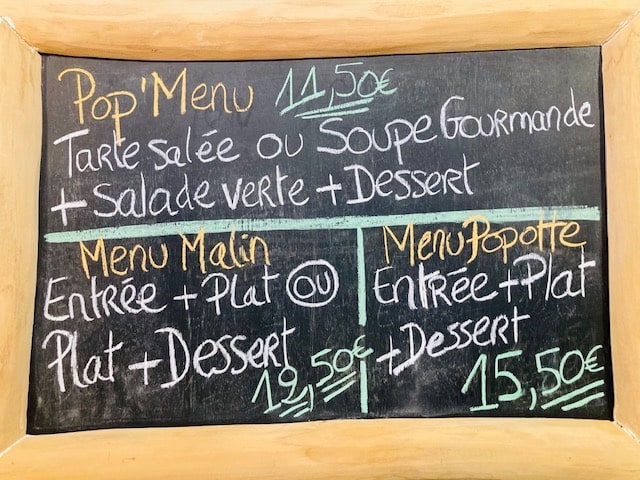 Pop'Menu 11,50€
Tarte salée ou Soupe Gourmande
+ Salade verte + Dessert
Menu Malin
Entrée + Plat OU
Plat + Dessert
12,50€
Menu Popotte
Entrée + Plat
+ Dessert
15,50€